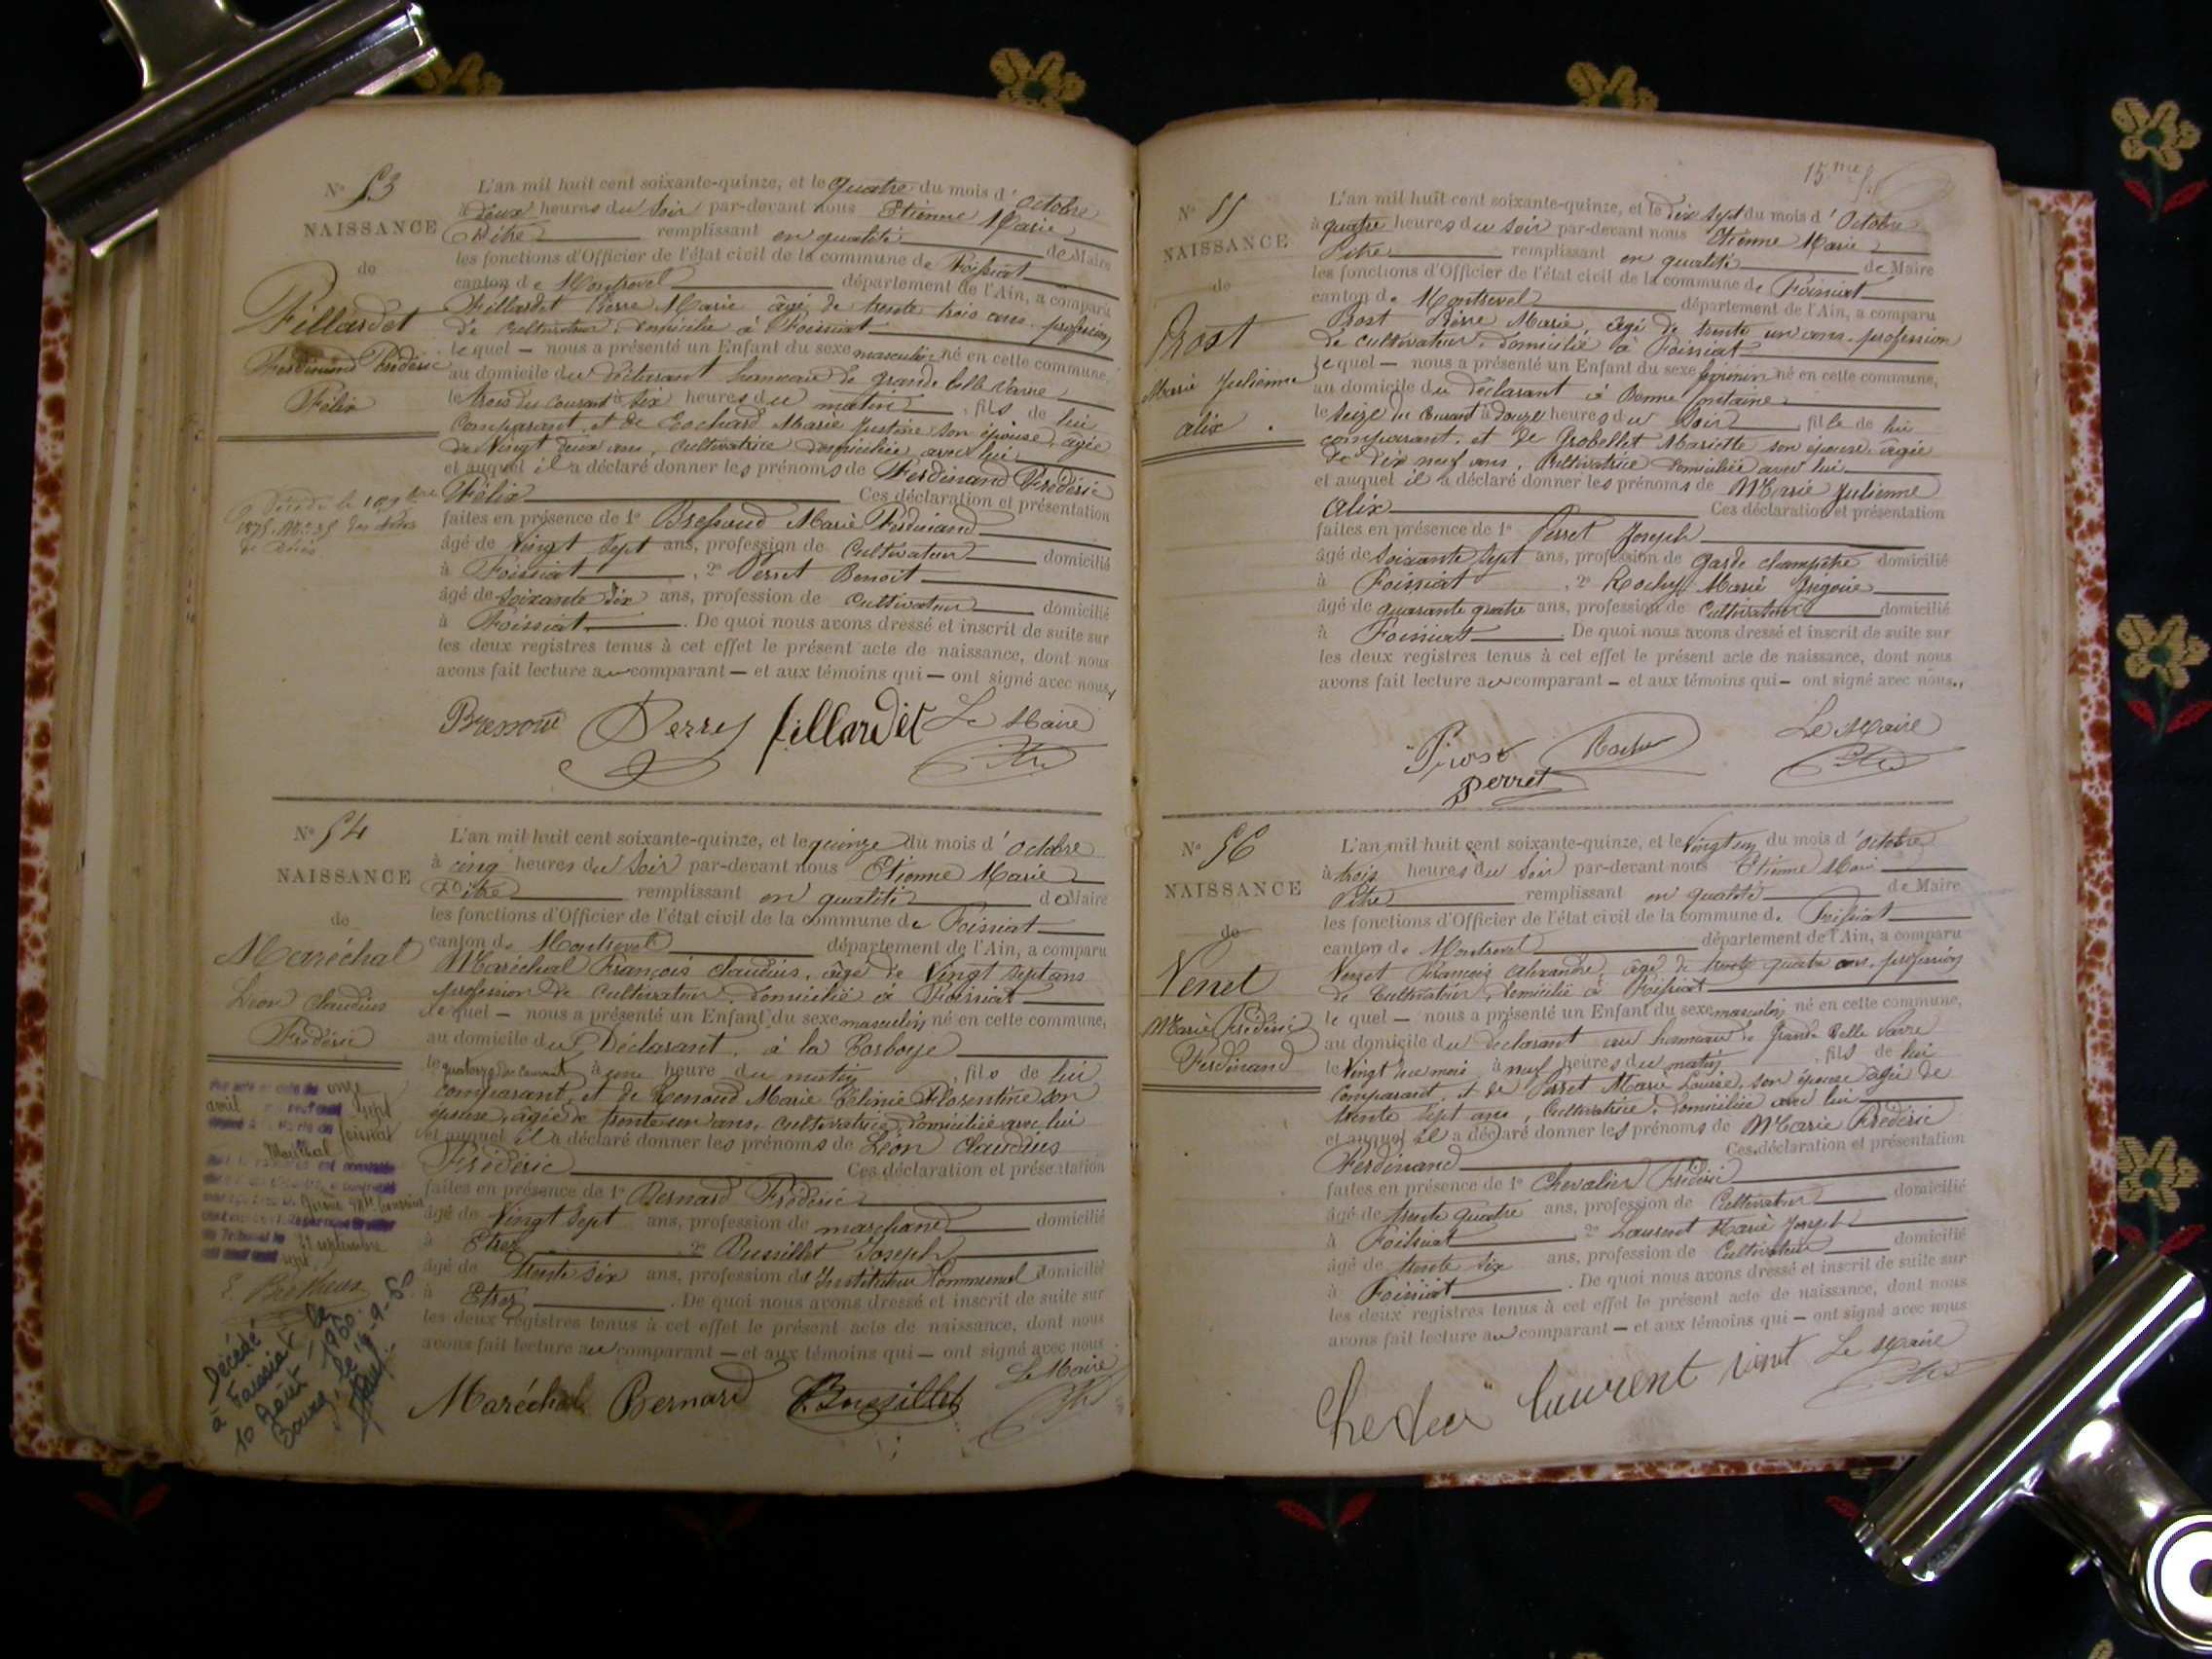 N° 53
NAISSANCE
de
Fillardet
Ferdinand Frédéric
Félix
Décédé le 10
1875. N° 35 des Actes
de Décès
L'an mil huit cent soixante-quinze, et le quatre du mois d'Octobre
à deux heures du Soir par-devant nous Etienne Marie
Pitre remplissant en qualité de Maire
les fonctions d'Officier de l'état civil de la commune de Foissiat
canton de Montrevel département de l'Ain, a comparu
Fillardet Pierre Marie âgé de trente trois ans profession
de cultivateur, domicilié à Foissiat
lequel — nous a présenté un Enfant du sexe masculin né en cette commune,
au domicile du Déclarant hameau de grande belle Vavre
le trois du courant à six heures du matin, fils de lui
Comparant, et de Marie Justine son épouse, âgée
de Vingt deux ans, Cultivatrice domiciliée avec lui
et auquel il a déclaré donner les prénoms de Ferdinand Frédéric
Félix Ces déclaration et présentation
faites en présence de 1° Bressoud Marie Ferdinand
âgé de Vingt sept ans, profession de Cultivateur domicilié
à Foissiat, 2° Perret Benoit
âgé de soixante dix ans, profession de Cultivateur domicilié
à Foissiat. De quoi nous avons dressé et inscrit de suite sur
les deux registres tenus à cet effet le présent acte de naissance, dont nous
avons fait lecture au comparant — et aux témoins qui — ont signé avec nous,
Perret fillardet Le Maire
N° 54
NAISSANCE
de
Maréchal
Léon Claudius
Frédéric
onze
avril sept
foissiat
Maréchal
22 septembre
sept
Décédé
à Foissiat le
10 Août 1960.
Bourg, le 19-9-60
L'an mil huit cent soixante-quinze, et le quinze du mois d'Octobre
à cinq heures du Soir par-devant nous Etienne Marie
Pitre remplissant en qualité de Maire
les fonctions d'Officier de l'état civil de la commune de Foissiat
canton de Montrevel département de l'Ain, a comparu
Maréchal François Claudius, âgé de Vingt sept ans
profession de cultivateur, domicilié à Foissiat
lequel — nous a présenté un Enfant du sexe masculin né en cette commune,
au domicile du Déclarant, à la
le quatorze du Courant à une heure du matin, fils de lui
comparant, et de Renoud Marie Célinie Florentine son
épouse, âgée de trente un ans, cultivatrice, domiciliée avec lui
et auquel il a déclaré donner les prénoms de Léon Claudius
Frédéric Ces déclaration et présentation
faites en présence de 1° Bernard Frédéric
âgé de Vingt sept ans, profession de marchand domicilié
à Etrez 2° Bussillet Joseph
âgé de trente six ans, profession d'Instituteur Communal domicilié
à Etrez. De quoi nous avons dressé et inscrit de suite sur
les deux registres tenus à cet effet le présent acte de naissance, dont nous
avons fait lecture au comparant — et aux témoins qui — ont signé avec nous
Le Maire
Maréchal Bernard Bussillet
15me f.
N° 55
NAISSANCE
de
Prost
Marie Julienne
alix.
L'an mil huit cent soixante-quinze, et le dix sept du mois d'Octobre
à quatre heures du soir par-devant nous Etienne Marie
Pitre remplissant en qualité de Maire
les fonctions d'Officier de l'état civil de la commune de Foissiat
canton de Montrevel département de l'Ain, a comparu
Prost Pierre Marie, âgé de trente un ans, profession
de cultivateur, domicilié à Foissiat
lequel — nous a présenté un Enfant du sexe féminin né en cette commune,
au domicile du déclarant à Bonne fontaine
le seize du Courant à douze heures du Soir, fille de lui
comparant, et de Grobellet Mariette son épouse, âgée
de dix neuf ans, Cultivatrice domiciliée avec lui
et auquel il a déclaré donner les prénoms de Marie Julienne
alix Ces déclaration et présentation
faites en présence de 1° Perret Joseph
âgé de soixante sept ans, profession de garde champêtre domicilié
à Foissiat, 2° Marie Grégoire
âgé de quarante quatre ans, profession de Cultivateur domicilié
à Foissiat. De quoi nous avons dressé et inscrit de suite sur
les deux registres tenus à cet effet le présent acte de naissance, dont nous
avons fait lecture au comparant — et aux témoins qui — ont signé avec nous.,
Le Maire
Prost
Perret
N° 56
NAISSANCE
de
Venet
Marie Frédéric
Ferdinand
L'an mil huit cent soixante-quinze, et le Vingt un du mois d'Octobre
à trois heures du Soir par-devant nous Etienne Marie
Pitre remplissant en qualité de Maire
les fonctions d'Officier de l'état civil de la commune de Foissiat
canton de Montrevel département de l'Ain, a comparu
Venet François Alexandre, âgé de trente quatre ans, profession
de Cultivateur, domicilié à Foissiat
lequel — nous a présenté un Enfant du sexe masculin né en cette commune,
au domicile du déclarant au hameau de Grande Belle Vavre
le Vingt du mois à neuf heures du matin, fils de lui
Comparant, et de Perret Marie Louise, son épouse âgée de
trente sept ans, Cultivatrice, domiciliée avec lui
et auquel il a déclaré donner les prénoms de Marie Frédéric
Ferdinand Ces déclaration et présentation
faites en présence de 1° Chevalier Frédéric
âgé de trente quatre ans, profession de Cultivateur domicilié
à Foissiat, 2° Laurent Marie Joseph
âgé de trente six ans, profession de Cultivateur domicilié
à Foissiat. De quoi nous avons dressé et inscrit de suite sur
les deux registres tenus à cet effet le présent acte de naissance, dont nous
avons fait lecture au comparant — et aux témoins qui — ont signé avec nous
Le Maire
laurent venet